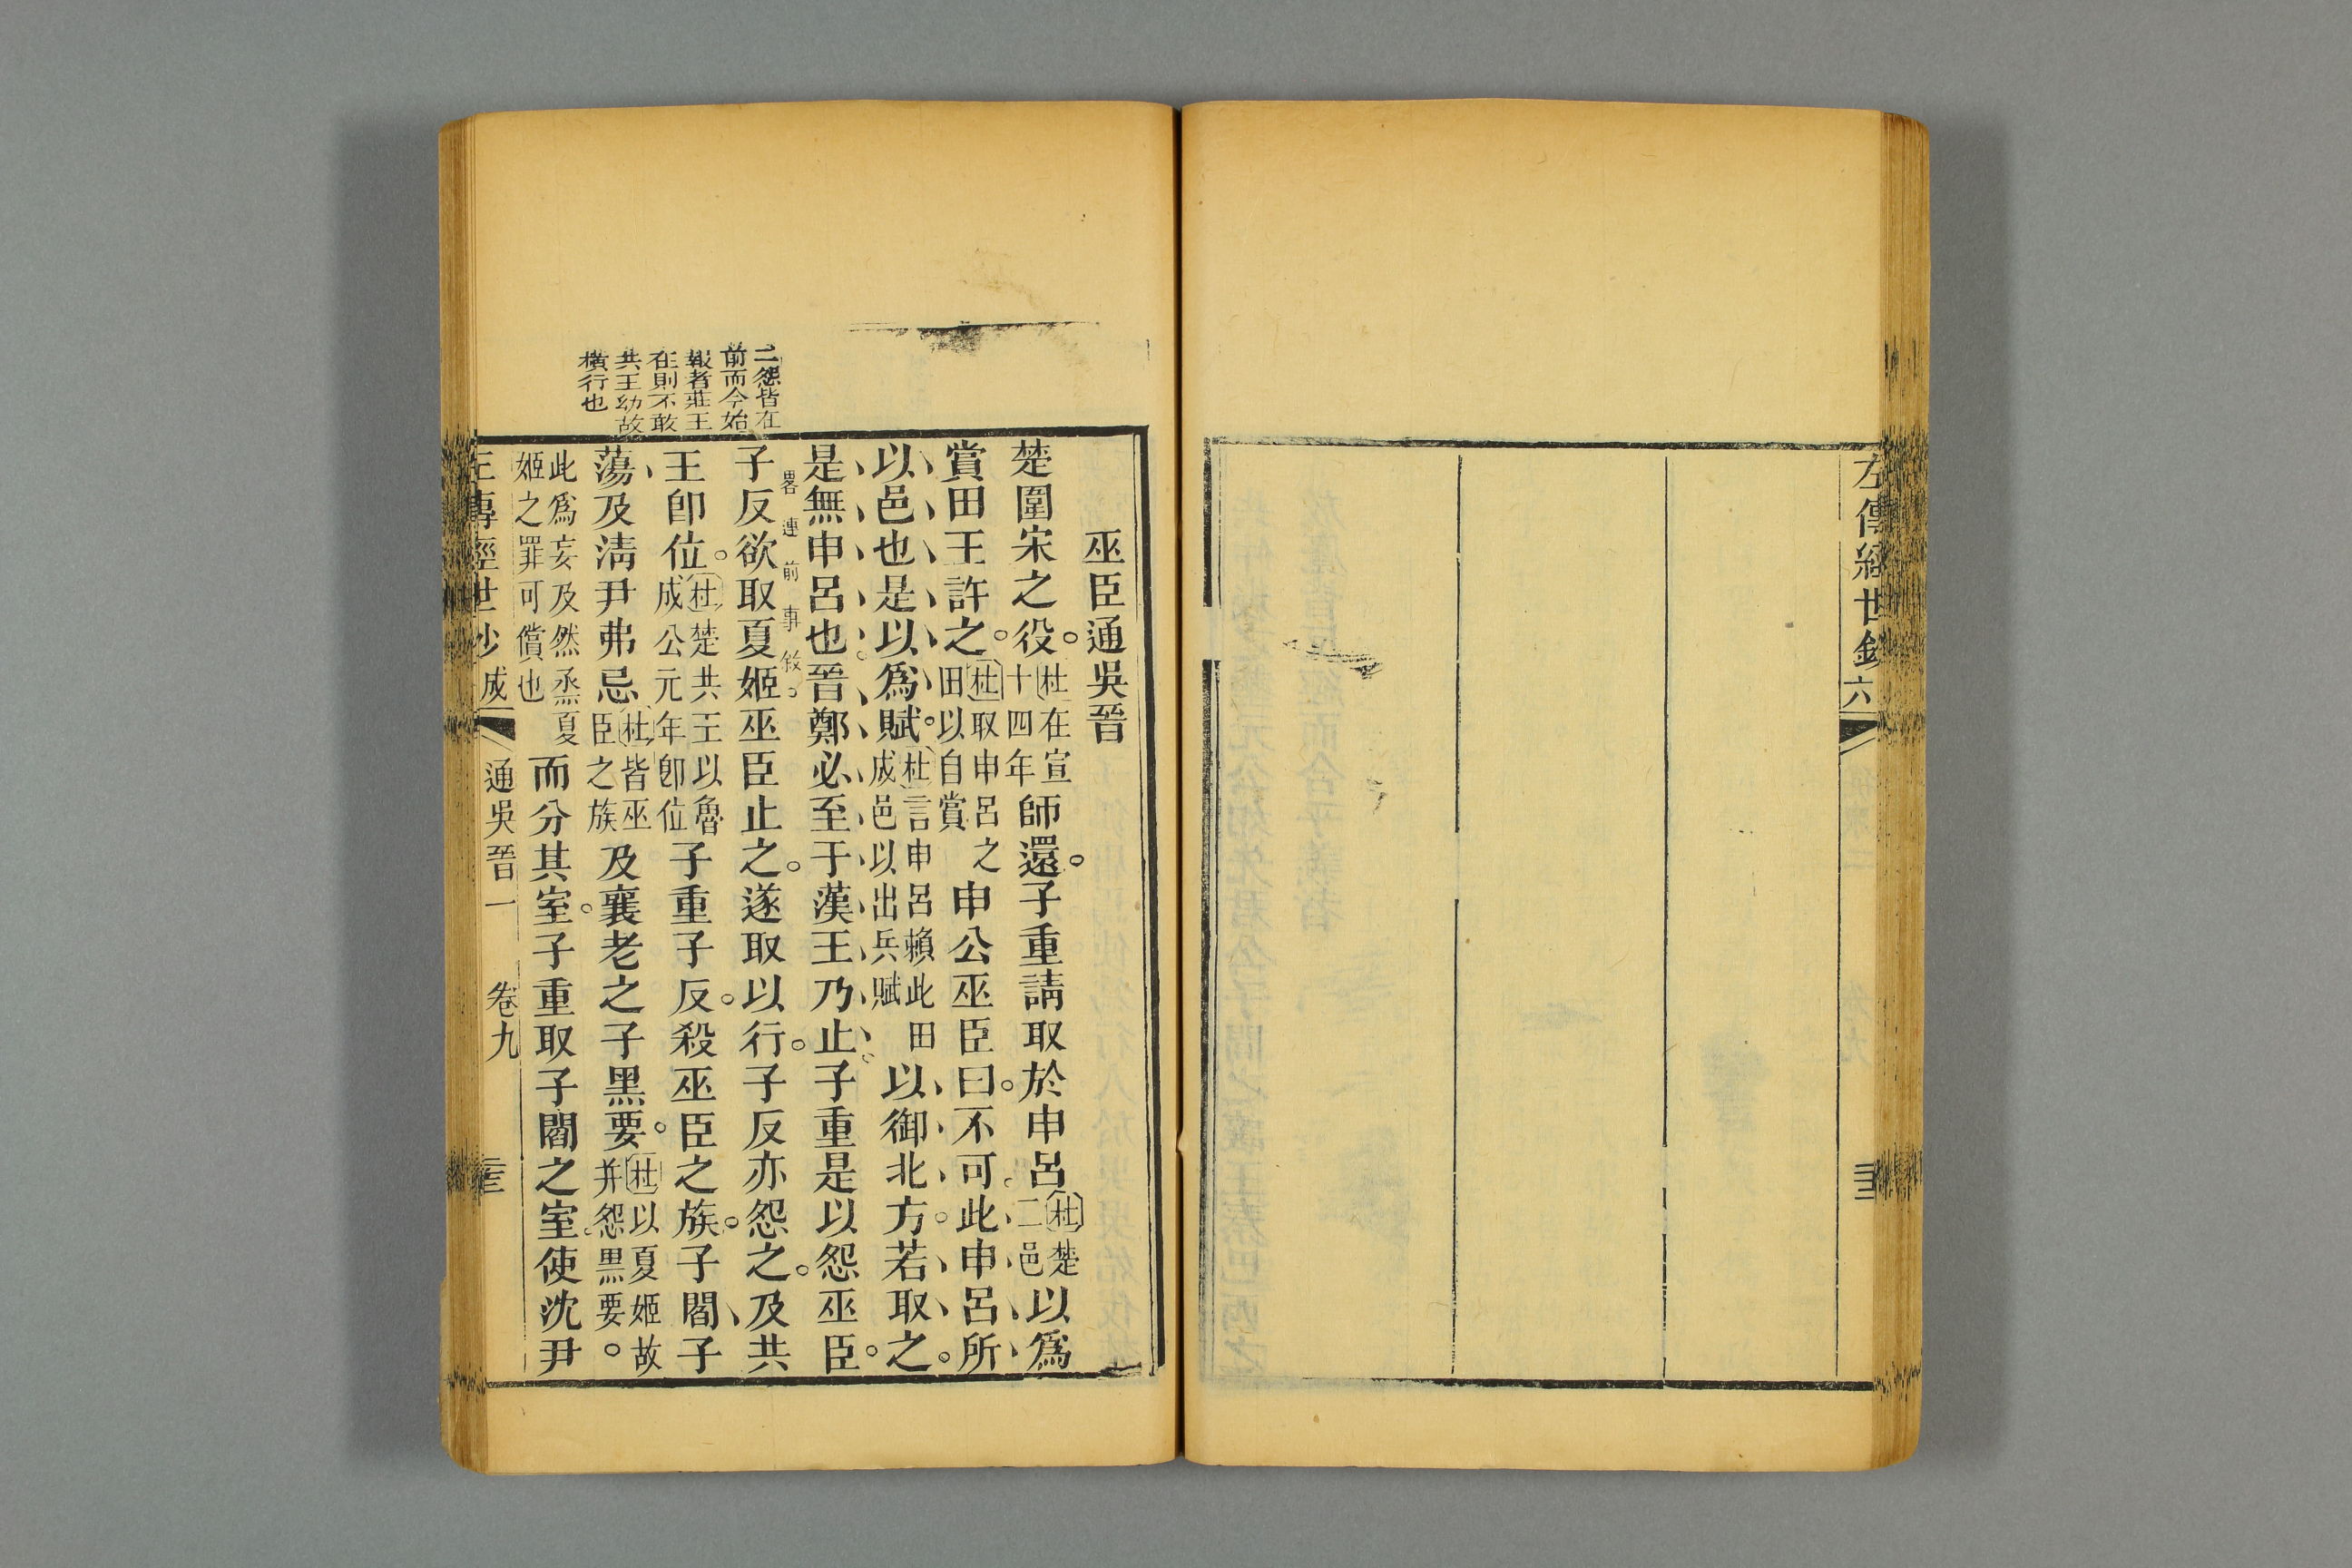 左傳經世鈔 六
二怨皆在
前而今始
報者莊王
在則不敢
共王幼故
橫行也
巫臣通吳晉
楚圍宋之役。杜在宣十四年師還。子重請取於申呂杜楚二邑以爲
賞田王許之。杜取申呂之田以自賞申公巫臣曰。不可。此申呂所
以邑也是以爲賦。杜言申呂賴此田成邑以出兵賦以御北方。若取之。
是無申呂也。晉鄭必至于漢王乃止。子重是以怨巫臣。
畧連前事敘。
子反欲取夏姬巫臣止之。遂取以行。子反亦怨之。及共
王卽位。杜楚共王以魯成公元年卽位子重子反。殺巫臣之族。子閻子
蕩及淸尹弗忌杜皆巫臣之族及襄老之子黑要。杜以夏姬故并怨黑要。
此爲妄及然烝夏姬之罪可償也而分其室。子重取子閻之室。使沈尹
左傳經世鈔 成 通吳晉一 卷九